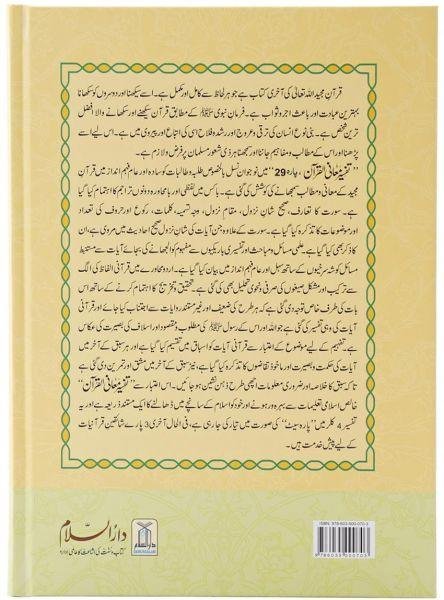 قرآن مجید اللہ تعالیٰ کی آخری کتاب ہے جو ہر لحاظ سے کامل اور مکمل ہے۔ اسے سیکھنا اور دوسروں کو سکھانا
بہترین عبادت اور باعث اجر و ثواب ہے۔ فرمان نبوی ﷺ کے مطابق قرآن سیکھنے اور سکھانے والا افضل
ترین شخص ہے۔ بنی نوع انسان کی ترقی و عروج اور رشد و فلاح اسی کی اتباع اور پیروی میں ہے۔ اس لیے اسے
پڑھنا اور اس کے مطالب و مفاہیم جاننا اور سمجھنا ہر ذی شعور مسلمان پر فرض و لازم ہے۔
"تفسیر معانی القرآن، پارہ 29" میں نوجوان نسل بالخصوص طلبہ و طالبات کو سادہ اور عام فہم انداز میں قرآن
مجید کے معانی و مطالب سمجھانے کی کوشش کی گئی ہے۔ بامحاورہ دونوں تراجم کا اہتمام کیا گیا
ہے۔ سورت کا تعارف، صحیح شان نزول، مقام نزول، وجہ تسمیہ، کلمات، رکوع اور حروف کی تعداد
اور موضوعات کا تذکرہ کیا گیا ہے۔ سورت کے علاوہ جن آیات کی شان نزول صحیح احادیث میں مروی ہے، ان
کا ذکر بھی کیا گیا ہے۔ علمی مسائل و مباحث اور تفسیری باریکیوں سے مفہوم کو الجھانے کی بجائے آیات سے مستنبط
مسائل کو سہل اور عام فہم انداز میں بیان کیا گیا ہے۔ قرآنی الفاظ کی الگ
سے ترکیب اور مشکل صیغوں کی صرفی و نحوی تحلیل بھی کی گئی ہے۔ تحقیق و تخریج کا اہتمام کرنے کے ساتھ اس
بات کی طرف خاص توجہ دی گئی ہے کہ ہر طرح کی ضعیف اور غیر مستند روایات سے اجتناب کیا جائے اور قرآنی
آیات کی وہی تفسیر کی گئی ہے جو اللہ اور اس کے رسول ﷺ کی مطلوب و مقصود اور اسلاف کی بصیرت کی عکاس
ہے۔ تفہیم کے لیے موضوع کے اعتبار سے قرآنی آیات کو اسباق میں تقسیم کیا گیا ہے اور ہر سبق کے آخر میں
آیات کی حکمت و بصیرت اور ماخوذ تقاضوں کا تذکرہ کیا گیا ہے، نیز سبق کے آخر میں مشق اور تمرین دی گئی ہے
تاکہ سبق کا خلاصہ اور ضروری معلومات اچھی طرح ذہن نشین ہو جائیں۔ اس اعتبار سے "تفسیر معانی القرآن"
خالص اسلامی تعلیمات سے بہرہ ور ہونے اور خود کو اسلام کے سانچے میں ڈھالنے کا ایک مستند ذریعہ ہے اور یہ
تفسیر 4 کلر میں "پارہ سیٹ" کی صورت میں تیار کی جا رہی ہے، فی الحال آخری 3 پارے شائقین قرآنیات
کے لیے پیش خدمت ہیں۔
دارالسلام
کتاب و سنت کی اشاعت کا عالمی ادارہ
دارالسلام
DARUSSALAM
ISBN: 978-603-500-070-3
9786035000703